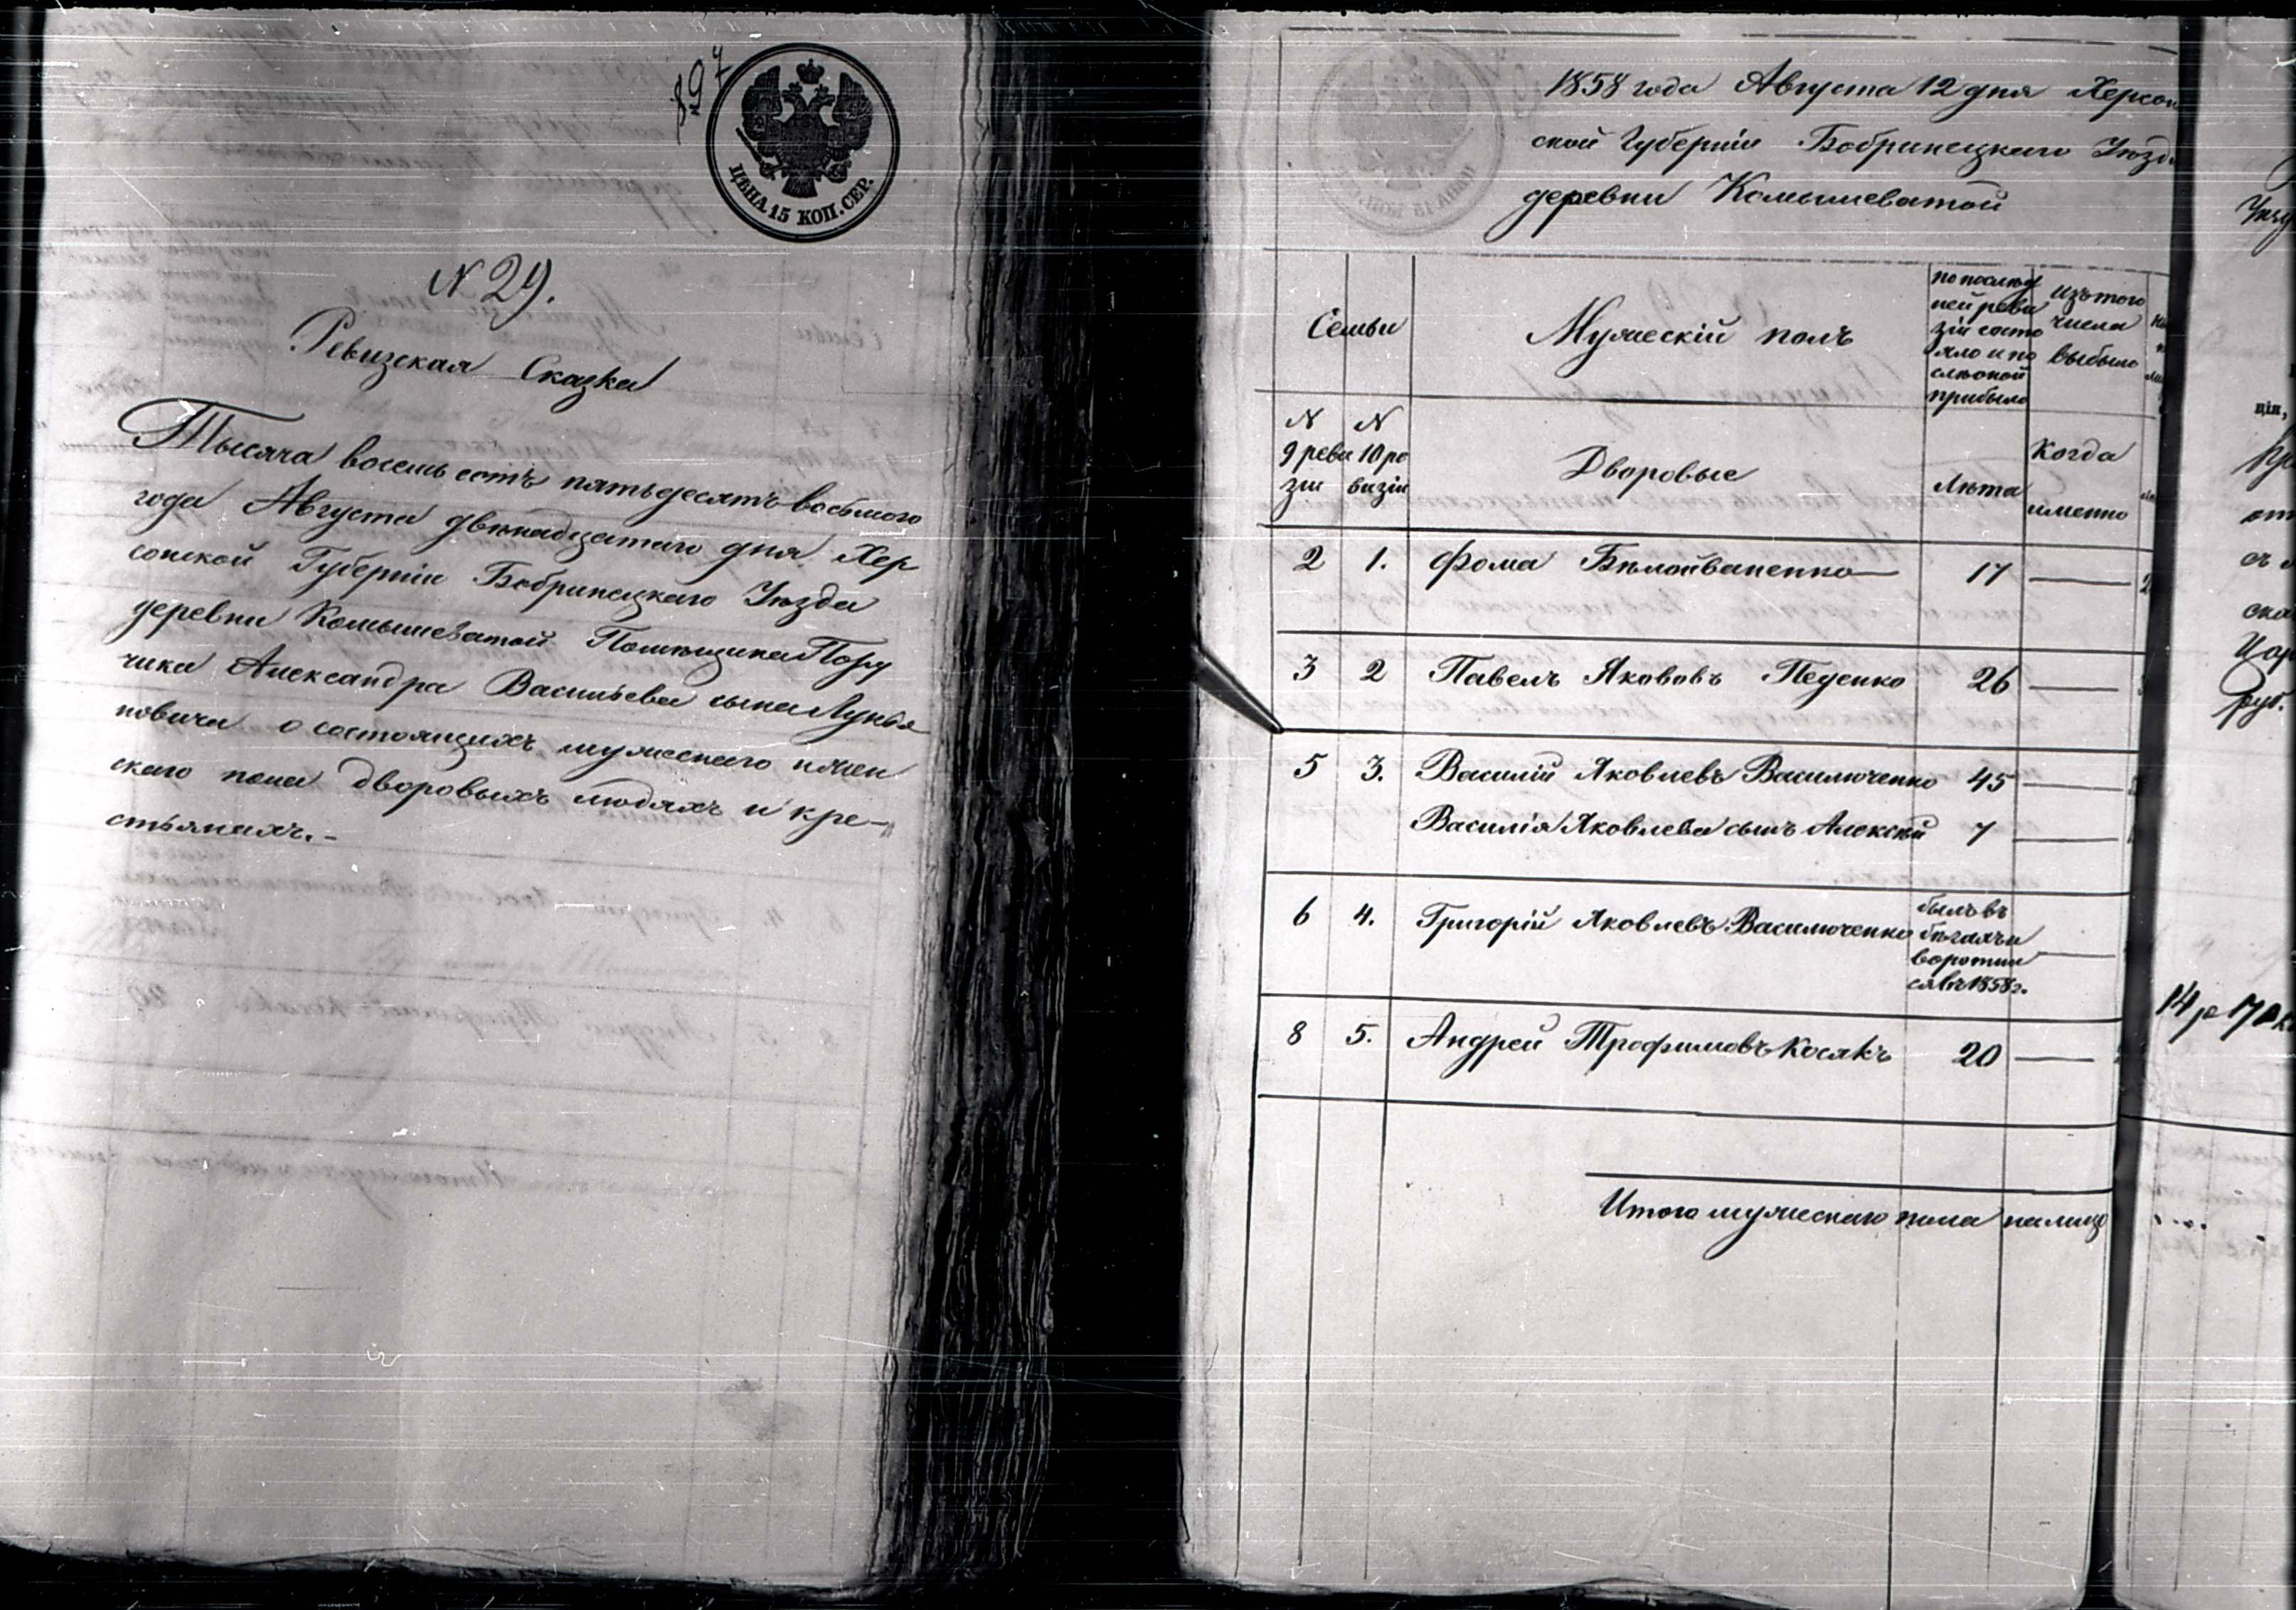 897
ЦѢНА 15 КОП. СЕР.
N 29.
Ревизская Сказка
Тысяча восемь сотъ пятьдесятъ восьмого
года Августа двенадцатого дня Хер
сонской Губерніи Бобринецкаго Уѣзда
деревни Комышеватой Помѣщика Пору
чика Александра Васильева сына Лукья
новича о состоящихъ мужескаго и жен
скаго пола дворовыхъ людяхъ и кре-
стьянахъ.-
1858 года Августа 12 дня Херсон
ской Губерніи Бобринецкаго Уѣзда
деревни Комышеватой
Семьи
Мужескій полъ
по послѣд
ней реви
зіи состо
яло и по
слѣ оной
прибыло
Изъ того
числа
выбыло
N
9 реви
зіи
N
10 ре
визіи
Дворовые
Лѣта
Когда
именно
2 1. Фома Бѣлойваненко 17
3 2 Павелъ Якововъ Педенко 26
5 3. Василій Яковлевъ Василюченко 45
Василія Яковлева сынъ Алексѣй 7
6 4. Григорій Яковлевъ Василюченко
былъ въ
бѣгахъ и
воротил
ся въ 1858 г.
8 5. Андрей Трофимовъ Косякъ 20
Итого мужескаго пола налицо
ція,
руб.